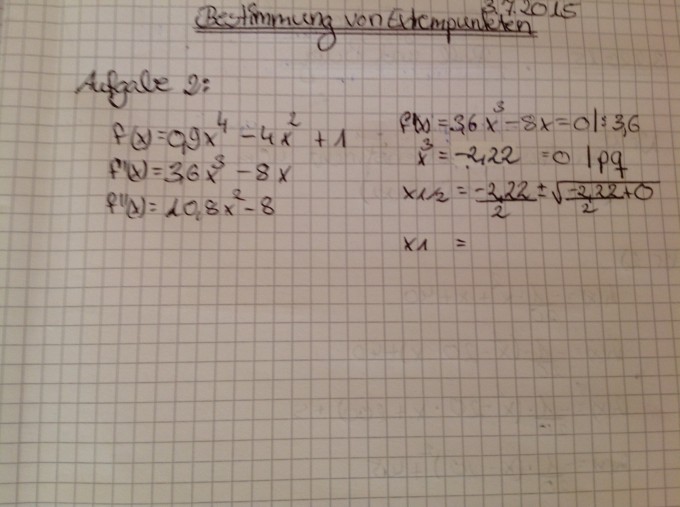 3.7.2015
Bestimmung von Extempunkten
Aufgabe 2:
f(x)=0,9x⁴ - 4x² + 1
f'(x)=3,6x³ - 8x
f''(x)=10,8x² - 8
f'(x)=3,6x³ - 8x=0 |:3,6
x³ = -2,22 =0 | pq
x1/2 = -2,22/2 ± √-2,22/2+0
x1 =